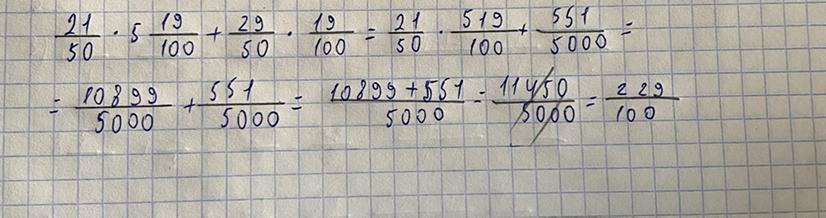 21/50 · 5 19/100 + 29/50 · 19/100 = 21/50 · 519/100 + 551/5000 =
= 10899/5000 + 551/5000 = 10899+551/5000 = 11450/5000 = 229/100